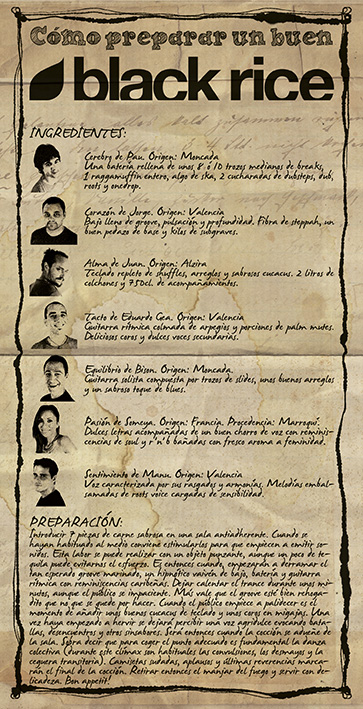 Cómo preparar un buen
black rice
INGREDIENTES:
Cerebro de Pau. Origen: Moncada
Una batería rellena de unos 8 ó 10 trozos medianos de breaks,
1 raggamuffin entero, algo de ska, 2 cucharadas de dubsteps, dub,
roots y onedrop.
Corazón de Jorge. Origen: Valencia
Bajo lleno de groove, pulsación y profundidad. Fibra de steppah, un
buen pedazo de base y kilos de subgraves.
Alma de Juan. Origen: Alzira
Teclado repleto de shuffles, arreglos y sabrosos cucacus. 2 litros de
colchones y 750cl. de acompañamientos.
Tacto de Eduardo Gea. Origen: Valencia
Guitarra rítmica colmada de arpegios y porciones de palm mutes.
Deliciosos coros y dulces voces secundarias.
Equilibrio de Bison. Origen: Moncada.
Guitarra solista compuesta por trozos de slides, unos buenos arreglos
y un sabroso toque de blues.
Pasión de Someya. Origen: Francia. Procedencia: Marroquí.
Dulces letras acompañadas de un buen chorro de voz con reminis-
cencias de soul y r'n'b bañadas con fresco aroma a feminidad.
Sentimiento de Manu. Origen: Valencia
Voz caracterizada por sus rasgados y armonías. Melodías embal-
samadas de roots voice cargadas de sensibilidad.
PREPARACIÓN:
Introducir 7 piezas de carne sabrosa en una sala antiadherente. Cuando se
hayan habituado al medio conviene estimularlos para que empiecen a emitir so-
nidos. Esta labor se puede realizar con un objeto punzante, aunque un poco de te-
quila puede evitarnos el esfuerzo. Es entonces cuando, empezarán a derramar el
tan esperado groove marinado, un hipnótico vaivén de bajo, batería y guitarra
rítmica con reminiscencias caribeñas. Dejar calentar el trance durante unos mi-
nutos, aunque el público se impaciente. Más vale que el groove esté bien rehoga-
dito que no que se quede por hacer. Cuando el público empiece a palidecer es el
momento de añadir unos buenos cucacus de teclado y unos coros en migajas. Una
vez haya empezado a hervir se dejará percibir una voz agridulce evocando bata-
llas, desencuentros y otros sinsabores. Será entonces cuando la sección se adueñe de
la sala. Sobra decir que para coger el punto adecuado es fundamental la danza
colectiva (durante este clímax son habituales las convulsiones, los desmayos y la
ceguera transitoria). Camisetas sudadas, aplausos y últimas reverencias marca-
rán el final de la cocción. Retirar entonces el manjar del fuego y servir con de-
licadeza. Bon appetit!